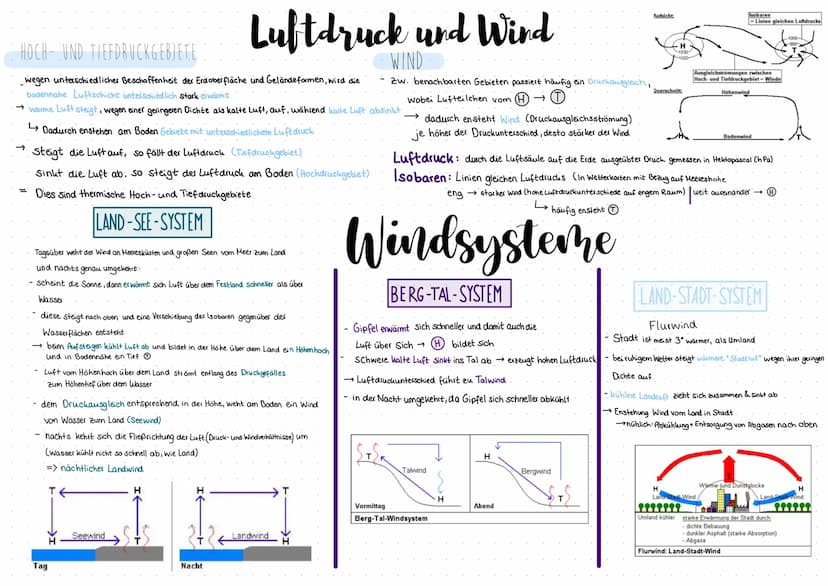 Luftdruck und Wind
HOCH- UND TIEFDRUCKGEBIETE
- wegen unterschiedlicher Beschaffenheit der Erdoberfläche und Geländeformen, wird die
bodennahe Luftschicht unterschiedlich stark erwärmt
→ warme Luft steigt, wegen einer geringeren Dichte als kalte Luft, auf, während kalte Luft absinkt
↳ Dadurch enstehen am Boden Gebiete mit unterschiedlichem Luftdruck
→ Steigt die Luft auf, so fällt der Luftdruck (Tiefdruckgebiet)
Sinkt die Luft ab, so steigt der Luftdruck am Boden (Hochdruckgebiet)
= Dies sind thermische Hoch- und Tiefdruckgebiete
WIND
- zw. benachbarten Gebieten passiert häufig ein Druckausgleich,
wobei Luftteilchen vom Ⓗ → Ⓣ
→ dadurch ensteht Wind (Druckausgleichsströmung)
je höher der Druckunterschied, desto stärker der Wind
Luftdruck: durch die Luftsäule auf die Erde ausgeübter Druck gemessen in Hektopascal (hPa)
Isobaren: Linien gleichen Luftdrucks (In Wetterkarten mit Bezug auf Meereshöhe
eng → starker Wind (hohe Luftdruckunterschiede auf engem Raum) | weit auseinander → Ⓗ
↳ häufig ensteht Ⓣ
Aufsicht:
Isobaren
– Linien gleichen Luftdrucks
H
T
Ausgleichströmungen zwischen
Hoch- und Tiefdruckgebiet – Winde
Querschnitt:
Höhenwind
H
T
Bodenwind
Windsysteme
LAND-SEE-SYSTEM
Tagsüber weht der Wind an Meeresküsten und großen Seen vom Meer zum Land
und nachts genau umgekehrt:
- scheint die Sonne, dann erwärmt sich Luft über dem Festland schneller als über
Wasser
- diese steigt nach oben und eine Verschiebung der Isobaren gegenüber des
Wasserflächen entsteht
→ beim Aufsteigen kühlt Luft ab und bildet in der Höhe über dem Land ein Höhenhoch
und in Bodennähe ein Tief Ⓣ
- Luft vom Höhenhoch über dem Land strömt entlang des Druckgefälles
zum Höhentief über dem Wasser
- dem Druckausgleich entsprechend in der Höhe, weht am Boden ein Wind
von Wasser zum Land (Seewind)
- nachts kehrt sich die Fließrichtung der Luft (Druck- und Windverhältnisse) um
(Wasser kühlt nicht so schnell ab, wie Land)
=> nächtlicher Landwind
T
H
Seewind
H
T
Tag
H
T
Landwind
T
H
Nacht
BERG-TAL-SYSTEM
- Gipfel erwärmt sich schneller und damit auch die
Luft über sich → Ⓗ bildet sich
- Schwere kalte Luft sinkt ins Tal ab → erzeugt hohen Luftdruck
→ Luftdruckunterschied führt zu Talwind
- in der Nacht umgekehrt, da Gipfel sich schneller abkühlt
T
Talwind
H
Vormittag
H
Bergwind
T
Abend
Berg-Tal-Windsystem
LAND-STADT-SYSTEM
Flurwind
- Stadt ist meist 3° wärmer, als Umland
- bei ruhigem Wetter steigt wärmere "Stadtluft" wegen ihrer geringen
Dichte auf
- kühlere Landluft zieht sich zusammen & sinkt ab
→ Enstehung Wind vom Land in Stadt
T
Wärme-(und Dunst)glocke
H
H
Land-Stadt-Wind
Land-Stadt-Wind
Umland kühler
starke Erwärmung der Stadt durch:
- dichte Bebauung
- dunkler Asphalt (starke Absorption)
- Abgase
Flurwind: Land-Stadt-Wind